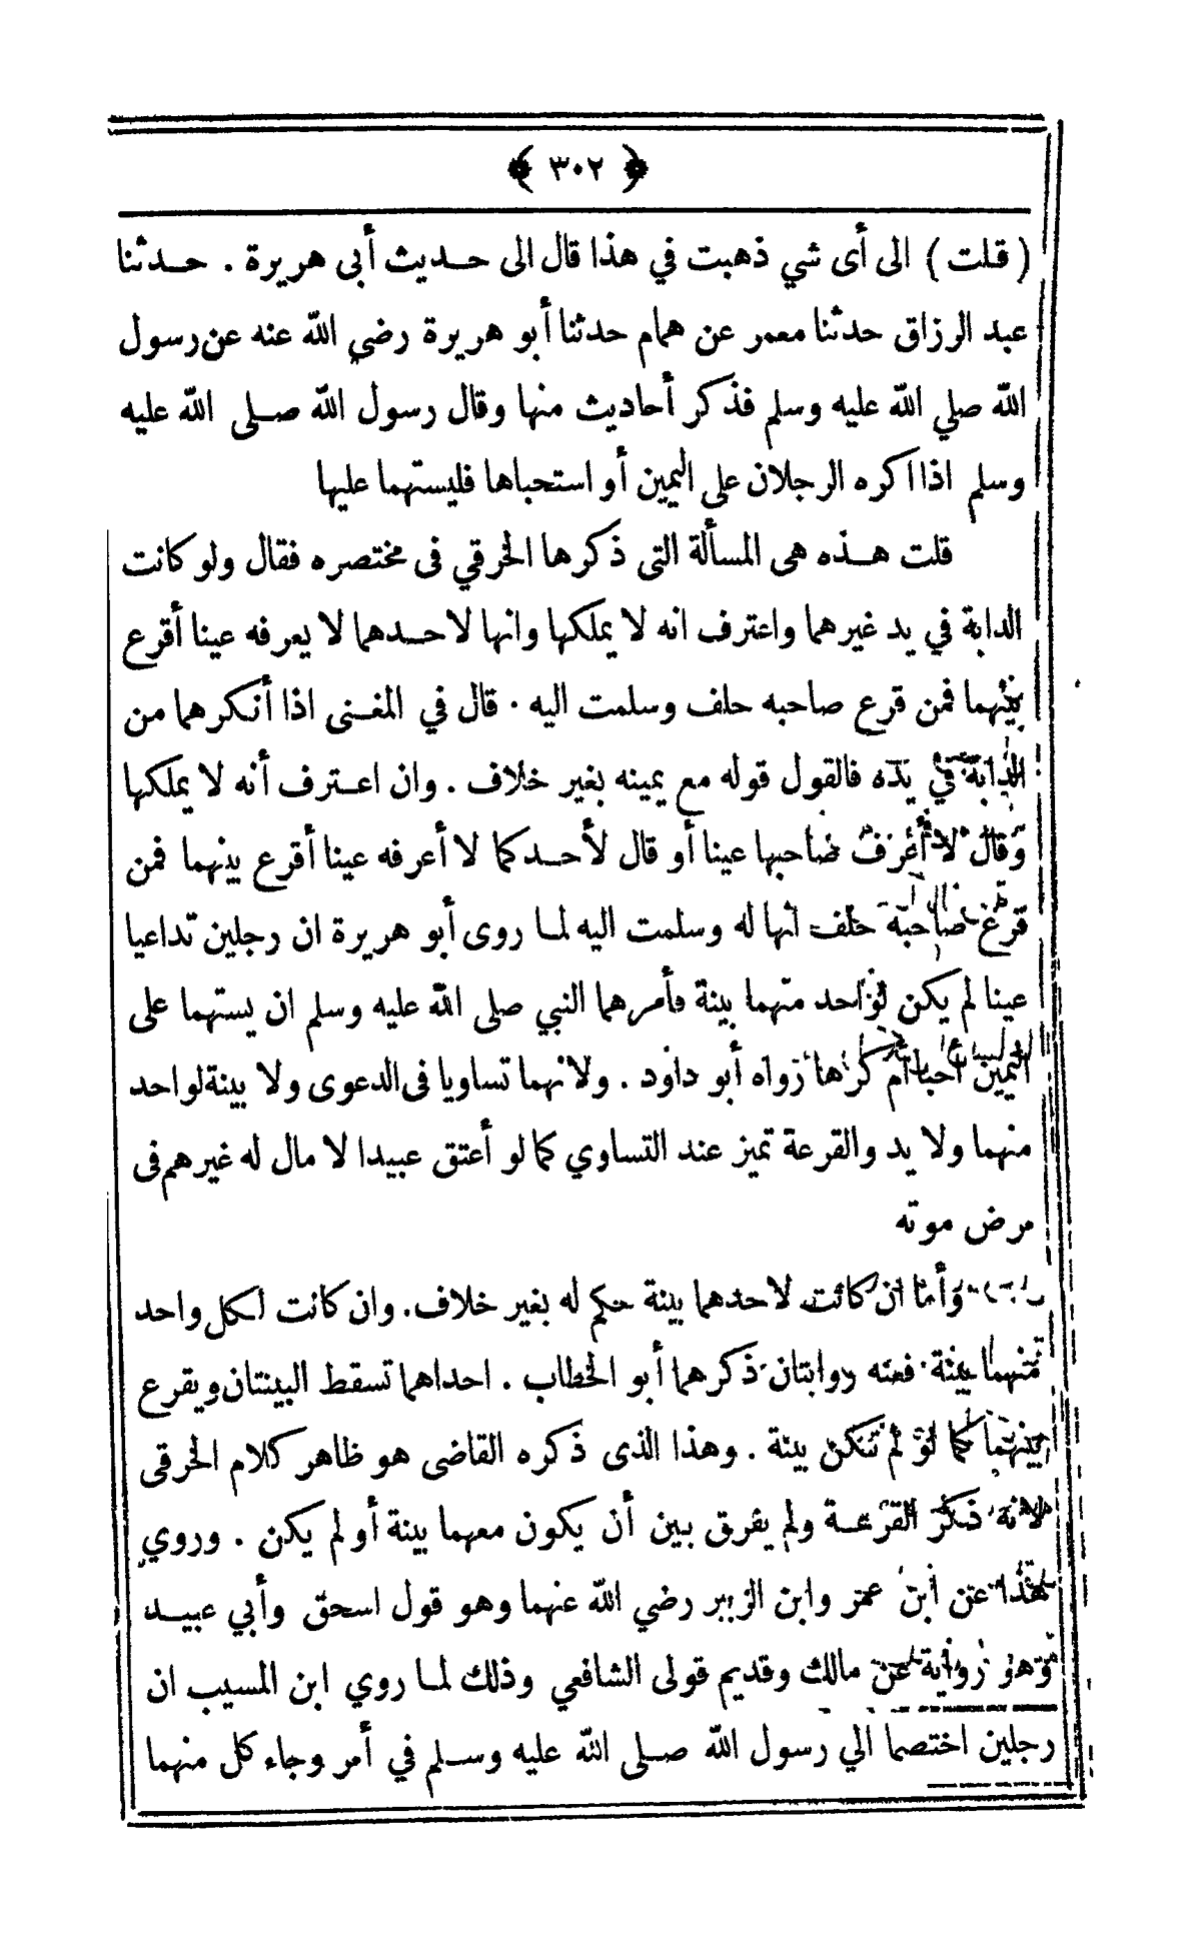 ﴿ ٣٠٢ ﴾
( قلت ) الى أى شي ذهبت في هذا قال الى حديث أبى هريرة . حدثنا
عبد الرزاق حدثنا معمر عن همام حدثنا أبو هريرة رضي الله عنه عن رسول
الله صلي الله عليه وسلم فذكر أحاديث منها وقال رسول الله صلى الله عليه
وسلم اذا اكره الرجلان على اليمين أو استحباها فليستهما عليها
قلت هذه هى المسألة التى ذكرها الخرقي فى مختصره فقال ولو كانت
الدابة في يد غيرهما واعترف انه لا يملكها وانها لاحدهما لا يعرفه عينا أقرع
بينهما فمن قرع صاحبه حلف وسلمت اليه . قال في المغنى اذا أنكرهما من
الدابة في يده فالقول قوله مع يمينه بغير خلاف . وان اعترف أنه لا يملكها
وقال لا أعرف صاحبها عينا أو قال لأحدكما لا أعرفه عينا أقرع بينهما فمن
قرع صاحبه حلف انها له وسلمت اليه لما روى أبو هريرة ان رجلين تداعيا
عينا لم يكن لواحد منهما بينة فأمرهما النبي صلى الله عليه وسلم ان يستهما على
اليمين أحبا أم كرها رواه أبو داود . ولانهما تساويا فى الدعوى ولا بينة لواحد
منهما ولا يد والقرعة تميز عند التساوي كما لو أعتق عبيدا لا مال له غيرهم فى
مرض موته
وأما ان كانت لاحدهما بينة حكم له بغير خلاف. وان كانت لكل واحد
منهما بينة ففيه روايتان ذكرهما أبو الخطاب . احداهما تسقط البينتان ويقرع
بينهما كما لو لم تكن بينة . وهذا الذى ذكره القاضى هو ظاهر كلام الخرقى
لانه ذكر القرعة ولم يفرق بين أن يكون معهما بينة أو لم يكن . وروي
هذا عن ابن عمر وابن الزبير رضي الله عنهما وهو قول اسحق وأبي عبيد
وهو رواية عن مالك وقديم قولى الشافعي وذلك لما روي ابن المسيب ان
رجلين اختصما الي رسول الله صلى الله عليه وسلم في أمر وجاء كل منهما